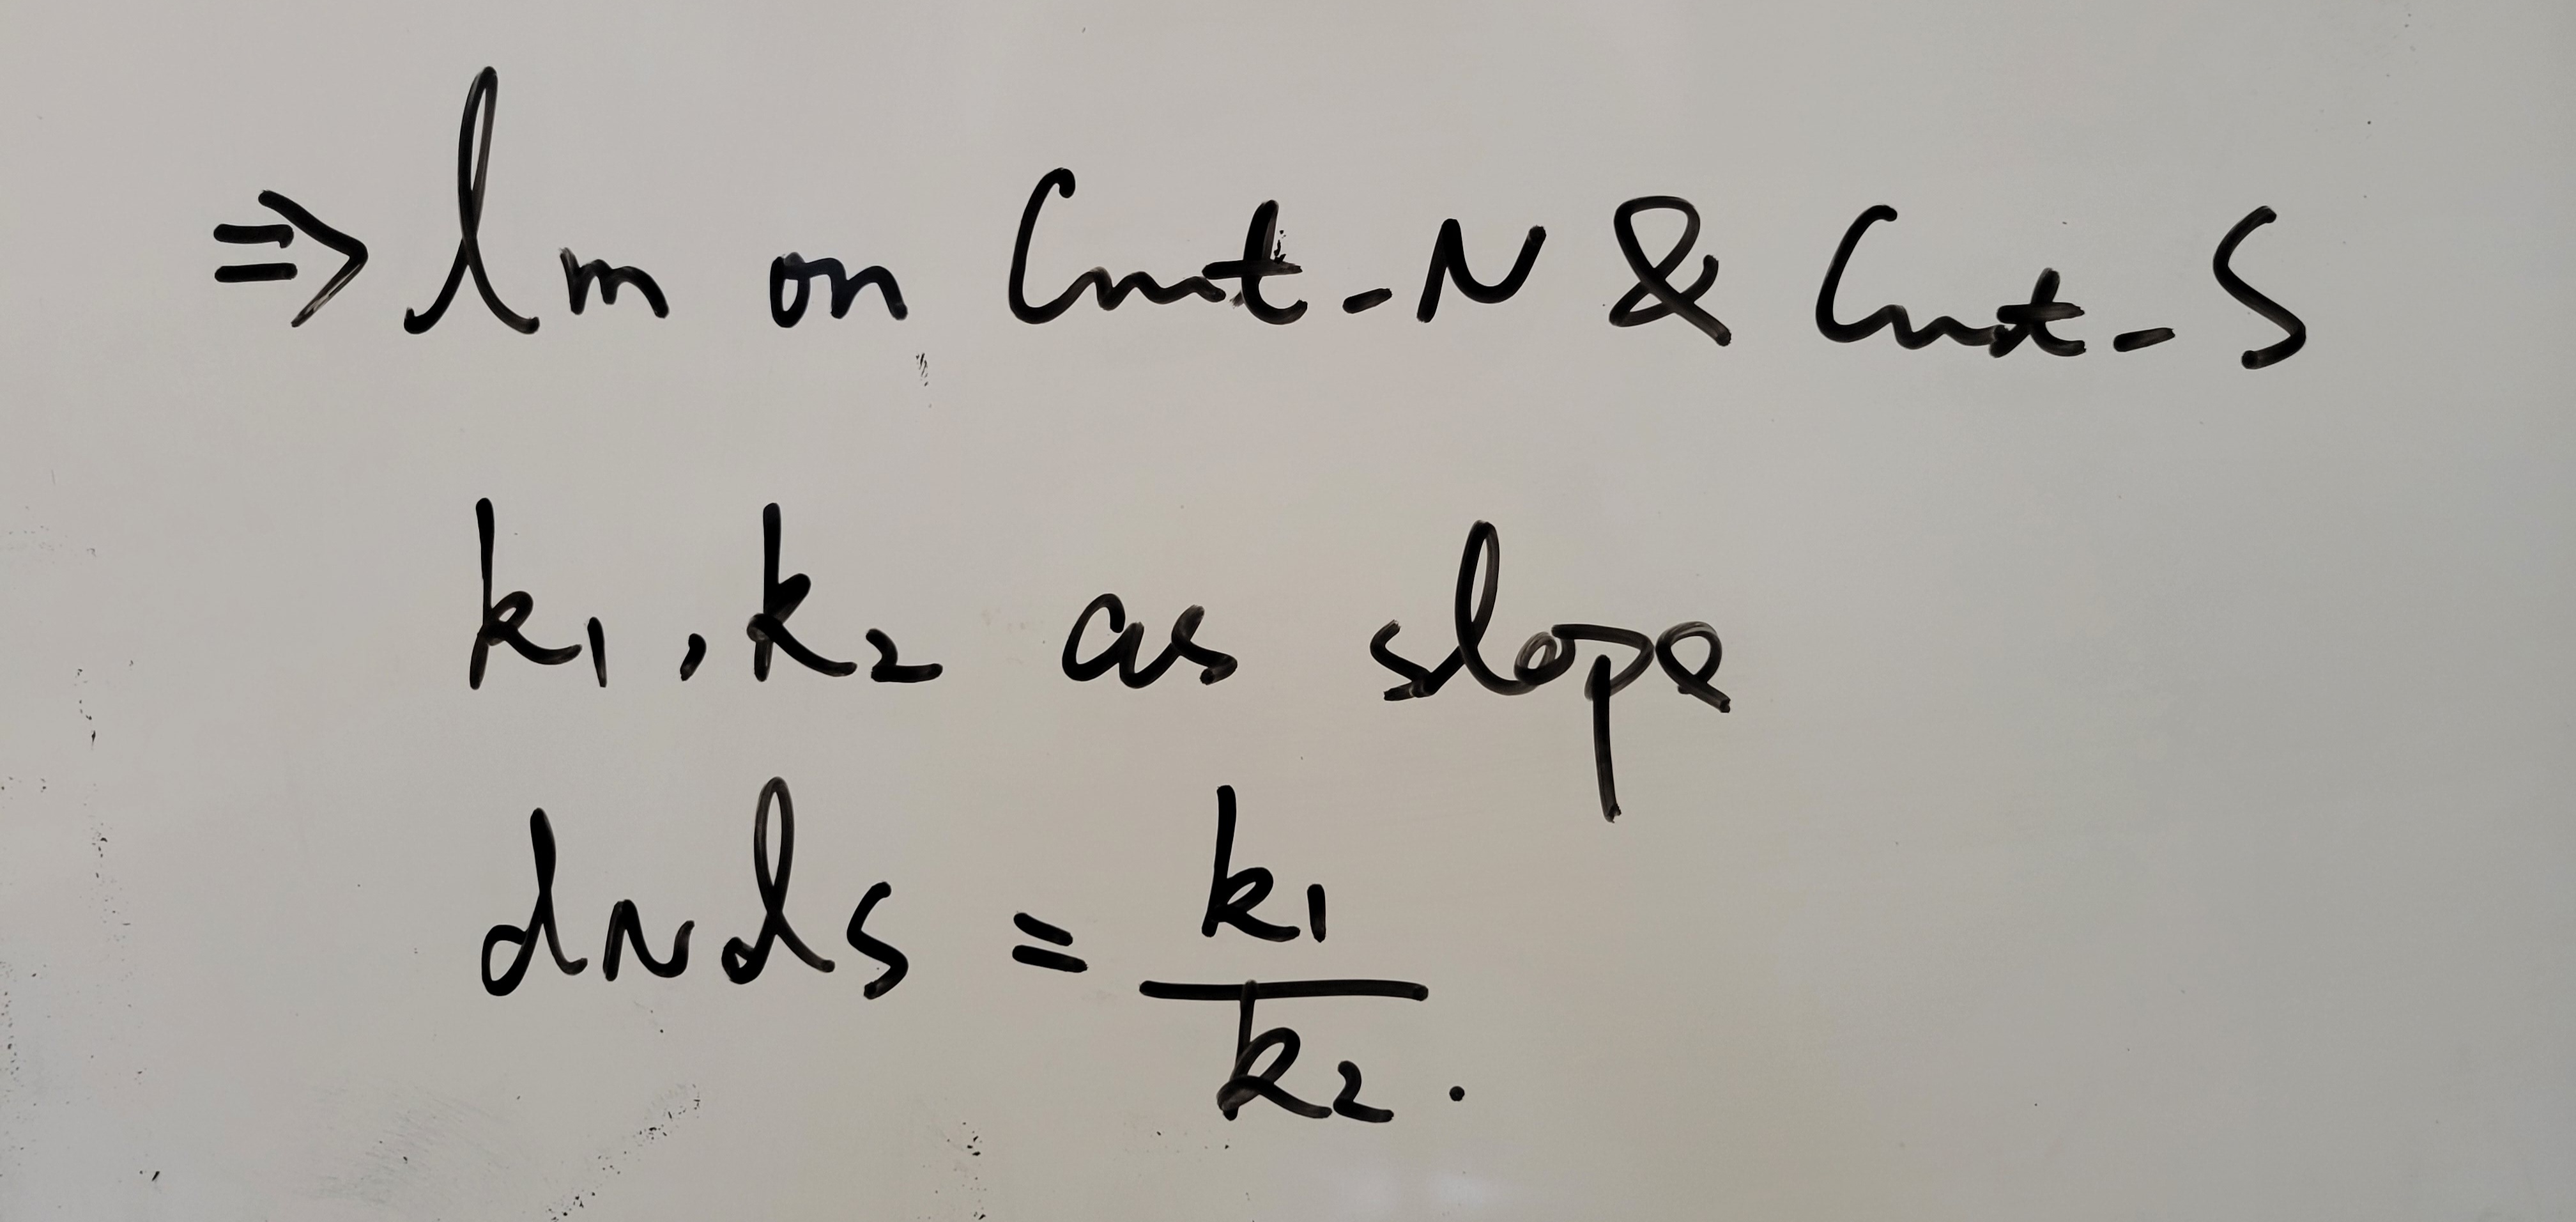 ⇒ lm on Cnt-N & Cnt-S
k₁, k₂ as slope
dNdS = k₁/k₂.